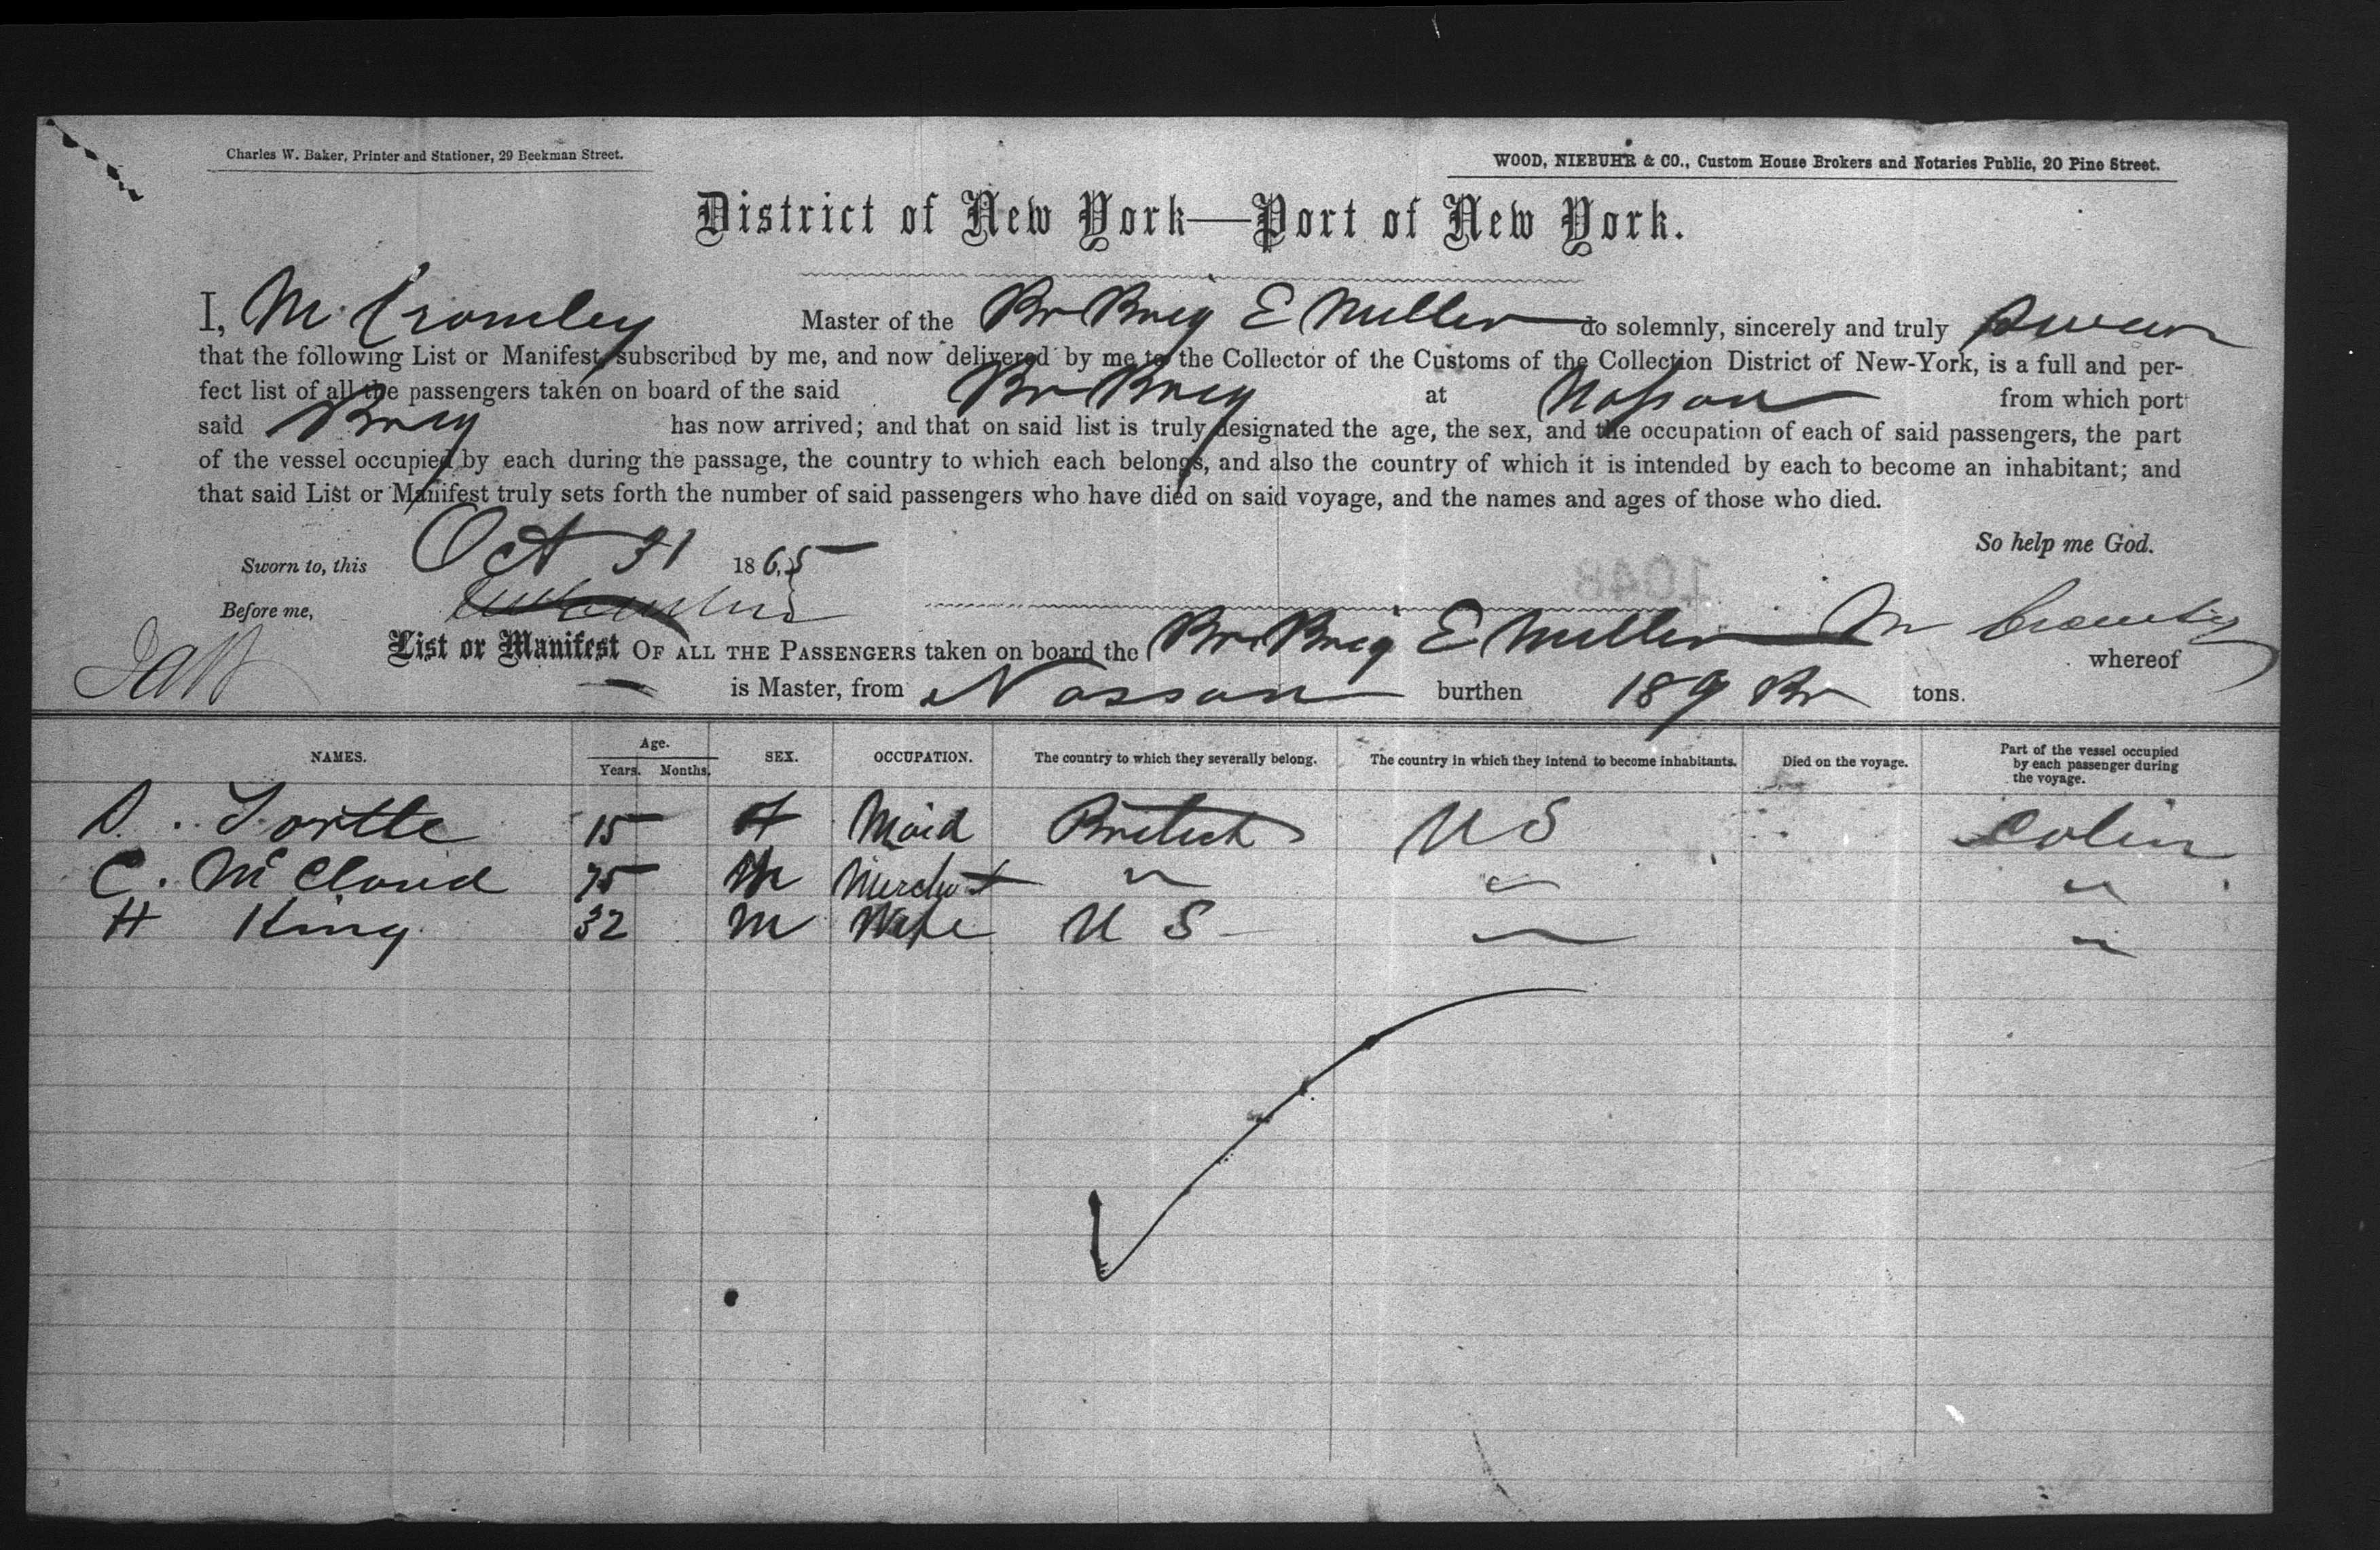 Charles W. Baker, Printer and Stationer, 29 Beekman Street.
WOOD, NIEBUHR & CO., Custom House Brokers and Notaries Public, 20 Pine Street.
District of New York—Port of New York.
I, M. Cromley Master of the Br Brig E Miller do solemnly, sincerely and truly swear
that the following List or Manifest, subscribed by me, and now delivered by me to the Collector of the Customs of the Collection District of New-York, is a full and per-
fect list of all the passengers taken on board of the said Br Brig at Nassau from which port
said Brig has now arrived; and that on said list is truly designated the age, the sex, and the occupation of each of said passengers, the part
of the vessel occupied by each during the passage, the country to which each belongs, and also the country of which it is intended by each to become an inhabitant; and
that said List or Manifest truly sets forth the number of said passengers who have died on said voyage, and the names and ages of those who died.
So help me God.
Sworn to, this Oct 31 1865
1048
Before me,
List or Manifest OF ALL THE PASSENGERS taken on board the Br Brig E Miller M Cromley whereof
is Master, from Nassau burthen 189 Br tons.
NAMES. Age. Years. Months. SEX. OCCUPATION. The country to which they severally belong. The country in which they intend to become inhabitants. Died on the voyage. Part of the vessel occupied by each passenger during the voyage.
D. Tortle 15 F Maid British U S Cabin
C. McCloud 75 M Merchant " " "
H King 32 M U S " "